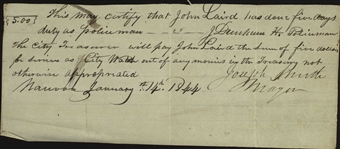 $5.00 This may certify that John Laird has done five days
duty as policeman — J Dunham H. Policeman
The City Treasurer will pay John Laird the Sum of five dollars
for services as City Watch out of any monies in the Treasury not
otherwise appropriated Joseph Smith
Nauvoo January 14th. 1844 Mayor